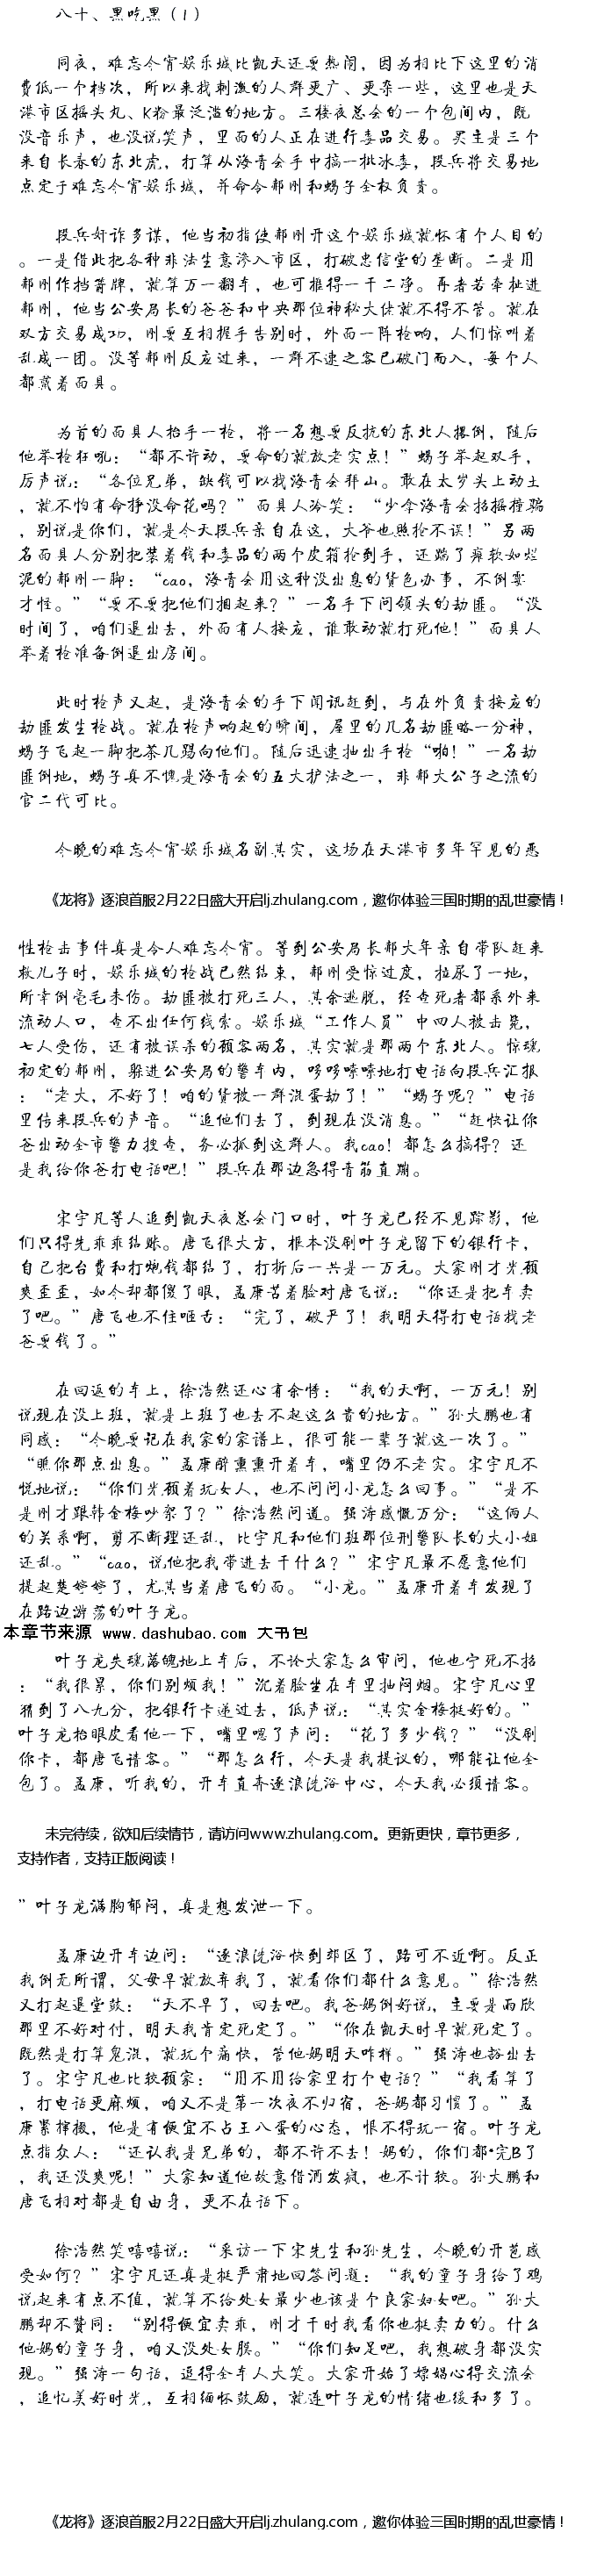 八十、黑吃黑（1）
同夜，难忘今宵娱乐城比凯天还要热闹，因为相比下这里的消
费低一个档次，所以来找刺激的人群更广、更杂一些，这里也是天
港市区摇头丸、K粉最泛滥的地方。三楼夜总会的一个包间内，既
没音乐声，也没说笑声，里面的人正在进行毒品交易。买主是三个
来自长春的东北虎，打算从海青会手中搞一批冰毒，段兵将交易地
点定于难忘今宵娱乐城，并命令郝刚和蝎子全权负责。
段兵奸诈多谋，他当初指使郝刚开这个娱乐城就怀有个人目的
。一是借此把各种非法生意渗入市区，打破忠信堂的垄断。二是用
郝刚作挡箭牌，就算万一翻车，也可推得一干二净。再者若牵扯进
郝刚，他当公安局长的爸爸和中央那位神秘大佬就不得不管。就在
双方交易成功，刚要互相握手告别时，外面一阵枪响，人们惊叫着
乱成一团。没等郝刚反应过来，一群不速之客已破门而入，每个人
都蒙着面具。
为首的面具人抬手一枪，将一名想要反抗的东北人撂倒，随后
他举枪狂吼：“都不许动，要命的就放老实点！”蝎子举起双手，
厉声说：“各位兄弟，缺钱可以找海青会拜山。敢在太岁头上动土
，就不怕有命挣没命花吗？”面具人冷笑：“少拿海青会招摇撞骗
，别说是你们，就是今天段兵亲自在这，大爷也照抢不误！”另两
名面具人分别把装着钱和毒品的两个皮箱抢到手，还踹了瘫软如烂
泥的郝刚一脚：“cao，海青会用这种没出息的货色办事，不倒霉
才怪。”“要不要把他们捆起来？”一名手下问领头的劫匪。“没
时间了，咱们退出去，外面有人接应，谁敢动就打死他！”面具人
举着枪准备倒退出房间。
此时枪声又起，是海青会的手下闻讯赶到，与在外负责接应的
劫匪发生枪战。就在枪声响起的瞬间，屋里的几名劫匪略一分神，
蝎子飞起一脚把茶几踢向他们。随后迅速抽出手枪“啪！”一名劫
匪倒地，蝎子真不愧是海青会的五大护法之一，非郝大公子之流的
官二代可比。
今晚的难忘今宵娱乐城名副其实，这场在天港市多年罕见的恶
《龙将》逐浪首服2月22日盛大开启lj.zhulang.com，邀你体验三国时期的乱世豪情！
性枪击事件真是令人难忘今宵。等到公安局长郝大年亲自带队赶来
救儿子时，娱乐城的枪战已然结束，郝刚受惊过度，拉尿了一地，
所幸倒毫毛未伤。劫匪被打死三人，其余逃脱，经查死者都系外来
流动人口，查不出任何线索。娱乐城“工作人员”中四人被击毙，
七人受伤，还有被误杀的顾客两名，其实就是那两个东北人。惊魂
初定的郝刚，躲进公安局的警车内，哆哆嗦嗦地打电话向段兵汇报
：“老大，不好了！咱的货被一群混蛋劫了！”“蝎子呢？”电话
里传来段兵的声音。“追他们去了，到现在没消息。”“赶快让你
爸出动全市警力搜查，务必抓到这群人。我cao！都怎么搞得？还
是我给你爸打电话吧！”段兵在那边急得青筋直蹦。
宋宇凡等人追到凯天夜总会门口时，叶子龙已经不见踪影，他
们只得先乖乖结账。唐飞很大方，根本没刷叶子龙留下的银行卡，
自己把台费和打炮钱都结了，打折后一共是一万元。大家刚才光顾
爽歪歪，如今却都傻了眼，孟康苦着脸对唐飞说：“你还是把车卖
了吧。”唐飞也不住咂舌：“完了，破产了！我明天得打电话找老
爸要钱了。”
在回返的车上，徐浩然还心有余悸：“我的天啊，一万元！别
说现在没上班，就是上班了也去不起这么贵的地方。”孙大鹏也有
同感：“今晚要记在我家的家谱上，很可能一辈子就这一次了。”
“瞧你那点出息。”孟康醉熏熏开着车，嘴里仍不老实。宋宇凡不
悦地说：“你们光顾着玩女人，也不问问小龙怎么回事。”“是不
是刚才跟韩金梅吵架了？”徐浩然问道。强涛感慨万分：“这俩人
的关系啊，剪不断理还乱，比宇凡和他们班那位刑警队长的大小姐
还乱。”“cao，说他把我带进去干什么？”宋宇凡最不愿意他们
提起楚婷婷了，尤其当着唐飞的面。“小龙。”孟康开着车发现了
在路边游荡的叶子龙。
本章节来源 www.dashubao.com 大书包
叶子龙失魂落魄地上车后，不论大家怎么审问，他也宁死不招
：“我很累，你们别烦我！”沉着脸坐在车里抽闷烟。宋宇凡心里
猜到了八九分，把银行卡递过去，低声说：“其实金梅挺好的。”
叶子龙抬眼皮看他一下，嘴里嗯了声问：“花了多少钱？”“没刷
你卡，都唐飞请客。”“那怎么行，今天是我提议的，哪能让他全
包了。孟康，听我的，开车直奔逐浪洗浴中心，今天我必须请客。
未完待续，欲知后续情节，请访问www.zhulang.com。更新更快，章节更多，
支持作者，支持正版阅读！
”叶子龙满胸郁闷，真是想发泄一下。
孟康边开车边问：“逐浪洗浴快到郊区了，路可不近啊。反正
我倒无所谓，父母早就放弃我了，就看你们都什么意见。”徐浩然
又打起退堂鼓：“天不早了，回去吧。我爸妈倒好说，主要是雨欣
那里不好对付，明天我肯定死定了。”“你在凯天时早就死定了。
既然是打算鬼混，就玩个痛快，管他妈明天咋样。”强涛也豁出去
了。宋宇凡也比较顾家：“用不用给家里打个电话？”“我看算了
，打电话更麻烦，咱又不是第一次夜不归宿，爸妈都习惯了。”孟
康紧撺掇，他是有便宜不占王八蛋的心态，恨不得玩一宿。叶子龙
点指众人：“还认我是兄弟的，都不许不去！妈的，你们都•完B了
，我还没爽呢！”大家知道他故意借酒发疯，也不计较。孙大鹏和
唐飞相对都是自由身，更不在话下。
徐浩然笑嘻嘻说：“采访一下宋先生和孙先生，今晚的开苞感
受如何？”宋宇凡还真是挺严肃地回答问题：“我的童子身给了鸡
说起来有点不值，就算不给处女最少也该是个良家妇女吧。”孙大
鹏却不赞同：“别得便宜卖乖，刚才干时我看你也挺卖力的。什么
他妈的童子身，咱又没处女膜。”“你们知足吧，我想破身都没实
现。”强涛一句话，逗得全车人大笑。大家开始了嫖娼心得交流会
，追忆美好时光，互相缅怀鼓励，就连叶子龙的情绪也缓和多了。
《龙将》逐浪首服2月22日盛大开启lj.zhulang.com，邀你体验三国时期的乱世豪情！